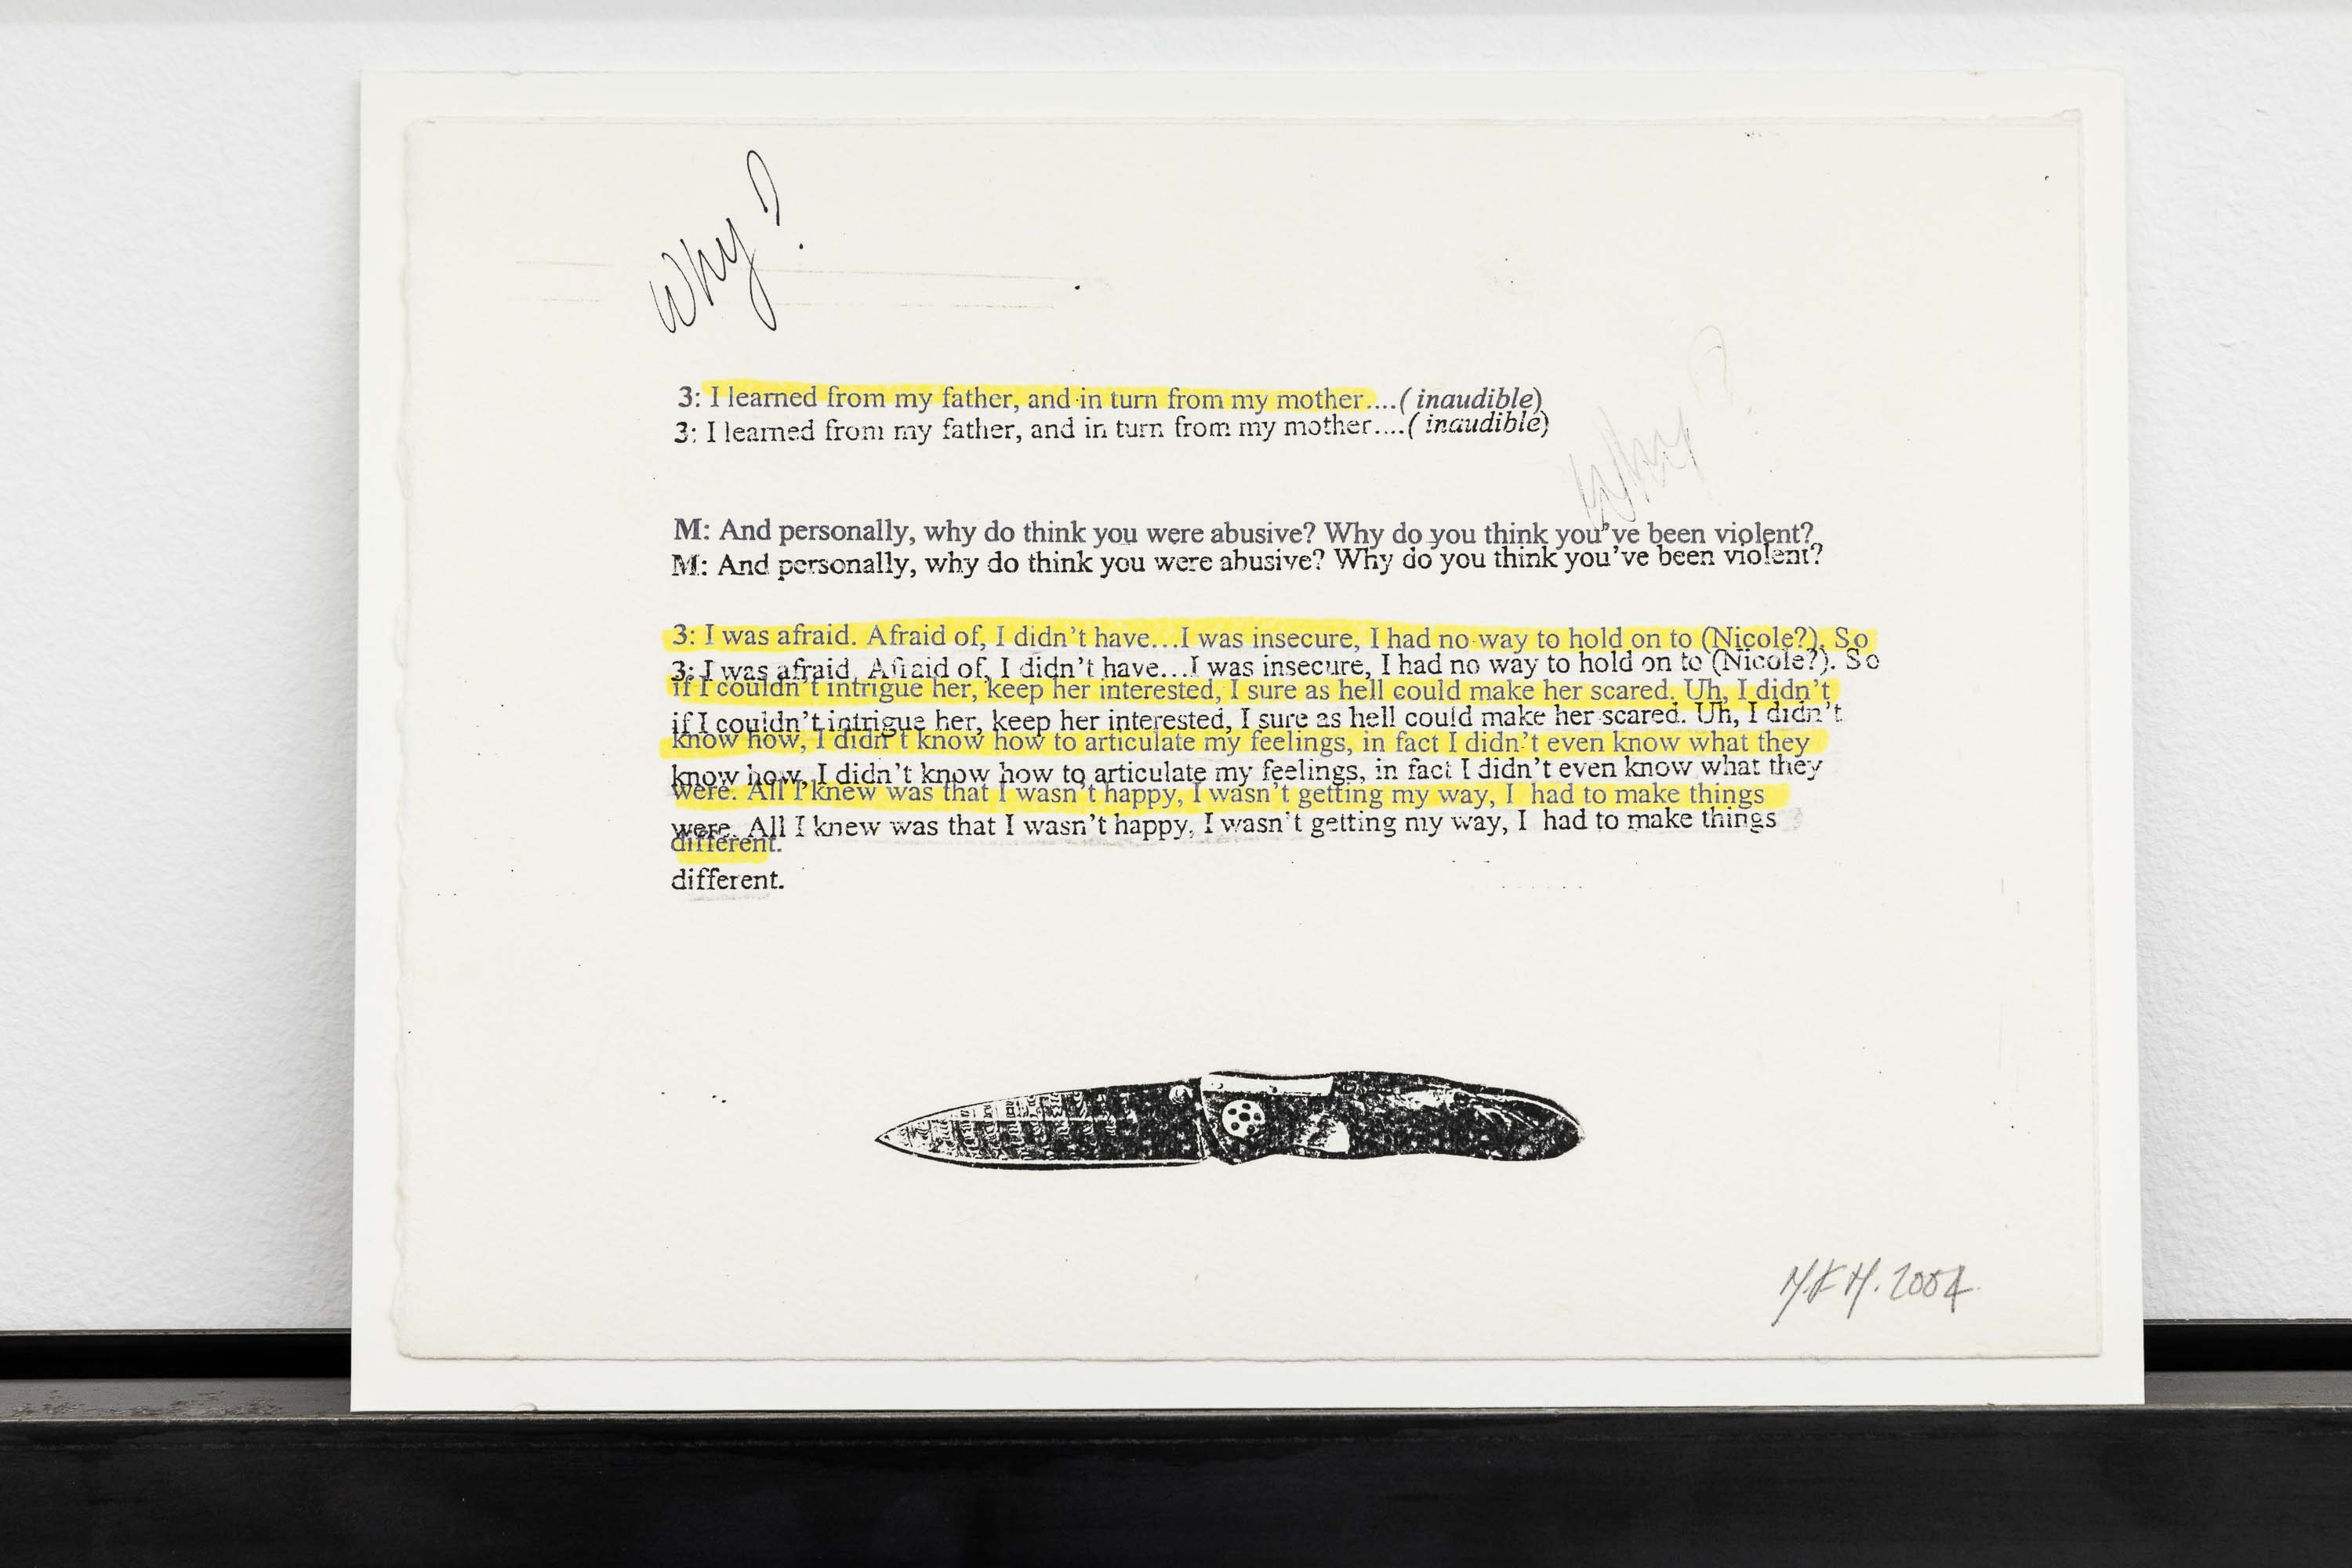 Why?
3: I learned from my father, and in turn from my mother....( inaudible)
3: I learned from my father, and in turn from my mother....( inaudible)
Why?
M: And personally, why do think you were abusive? Why do you think you've been violent?
M: And personally, why do think you were abusive? Why do you think you've been violent?
3: I was afraid. Afraid of, I didn't have...I was insecure, I had no way to hold on to (Nicole?). So
3: I was afraid. Afraid of, I didn't have...I was insecure, I had no way to hold on to (Nicole?). So
if I couldn't intrigue her, keep her interested, I sure as hell could make her scared. Uh, I didn't
if I couldn't intrigue her, keep her interested, I sure as hell could make her scared. Uh, I didn't
know how, I didn't know how to articulate my feelings, in fact I didn't even know what they
know how, I didn't know how to articulate my feelings, in fact I didn't even know what they
were. All I knew was that I wasn't happy, I wasn't getting my way, I had to make things
were. All I knew was that I wasn't happy, I wasn't getting my way, I had to make things
different.
different.
M.K.H. 2004